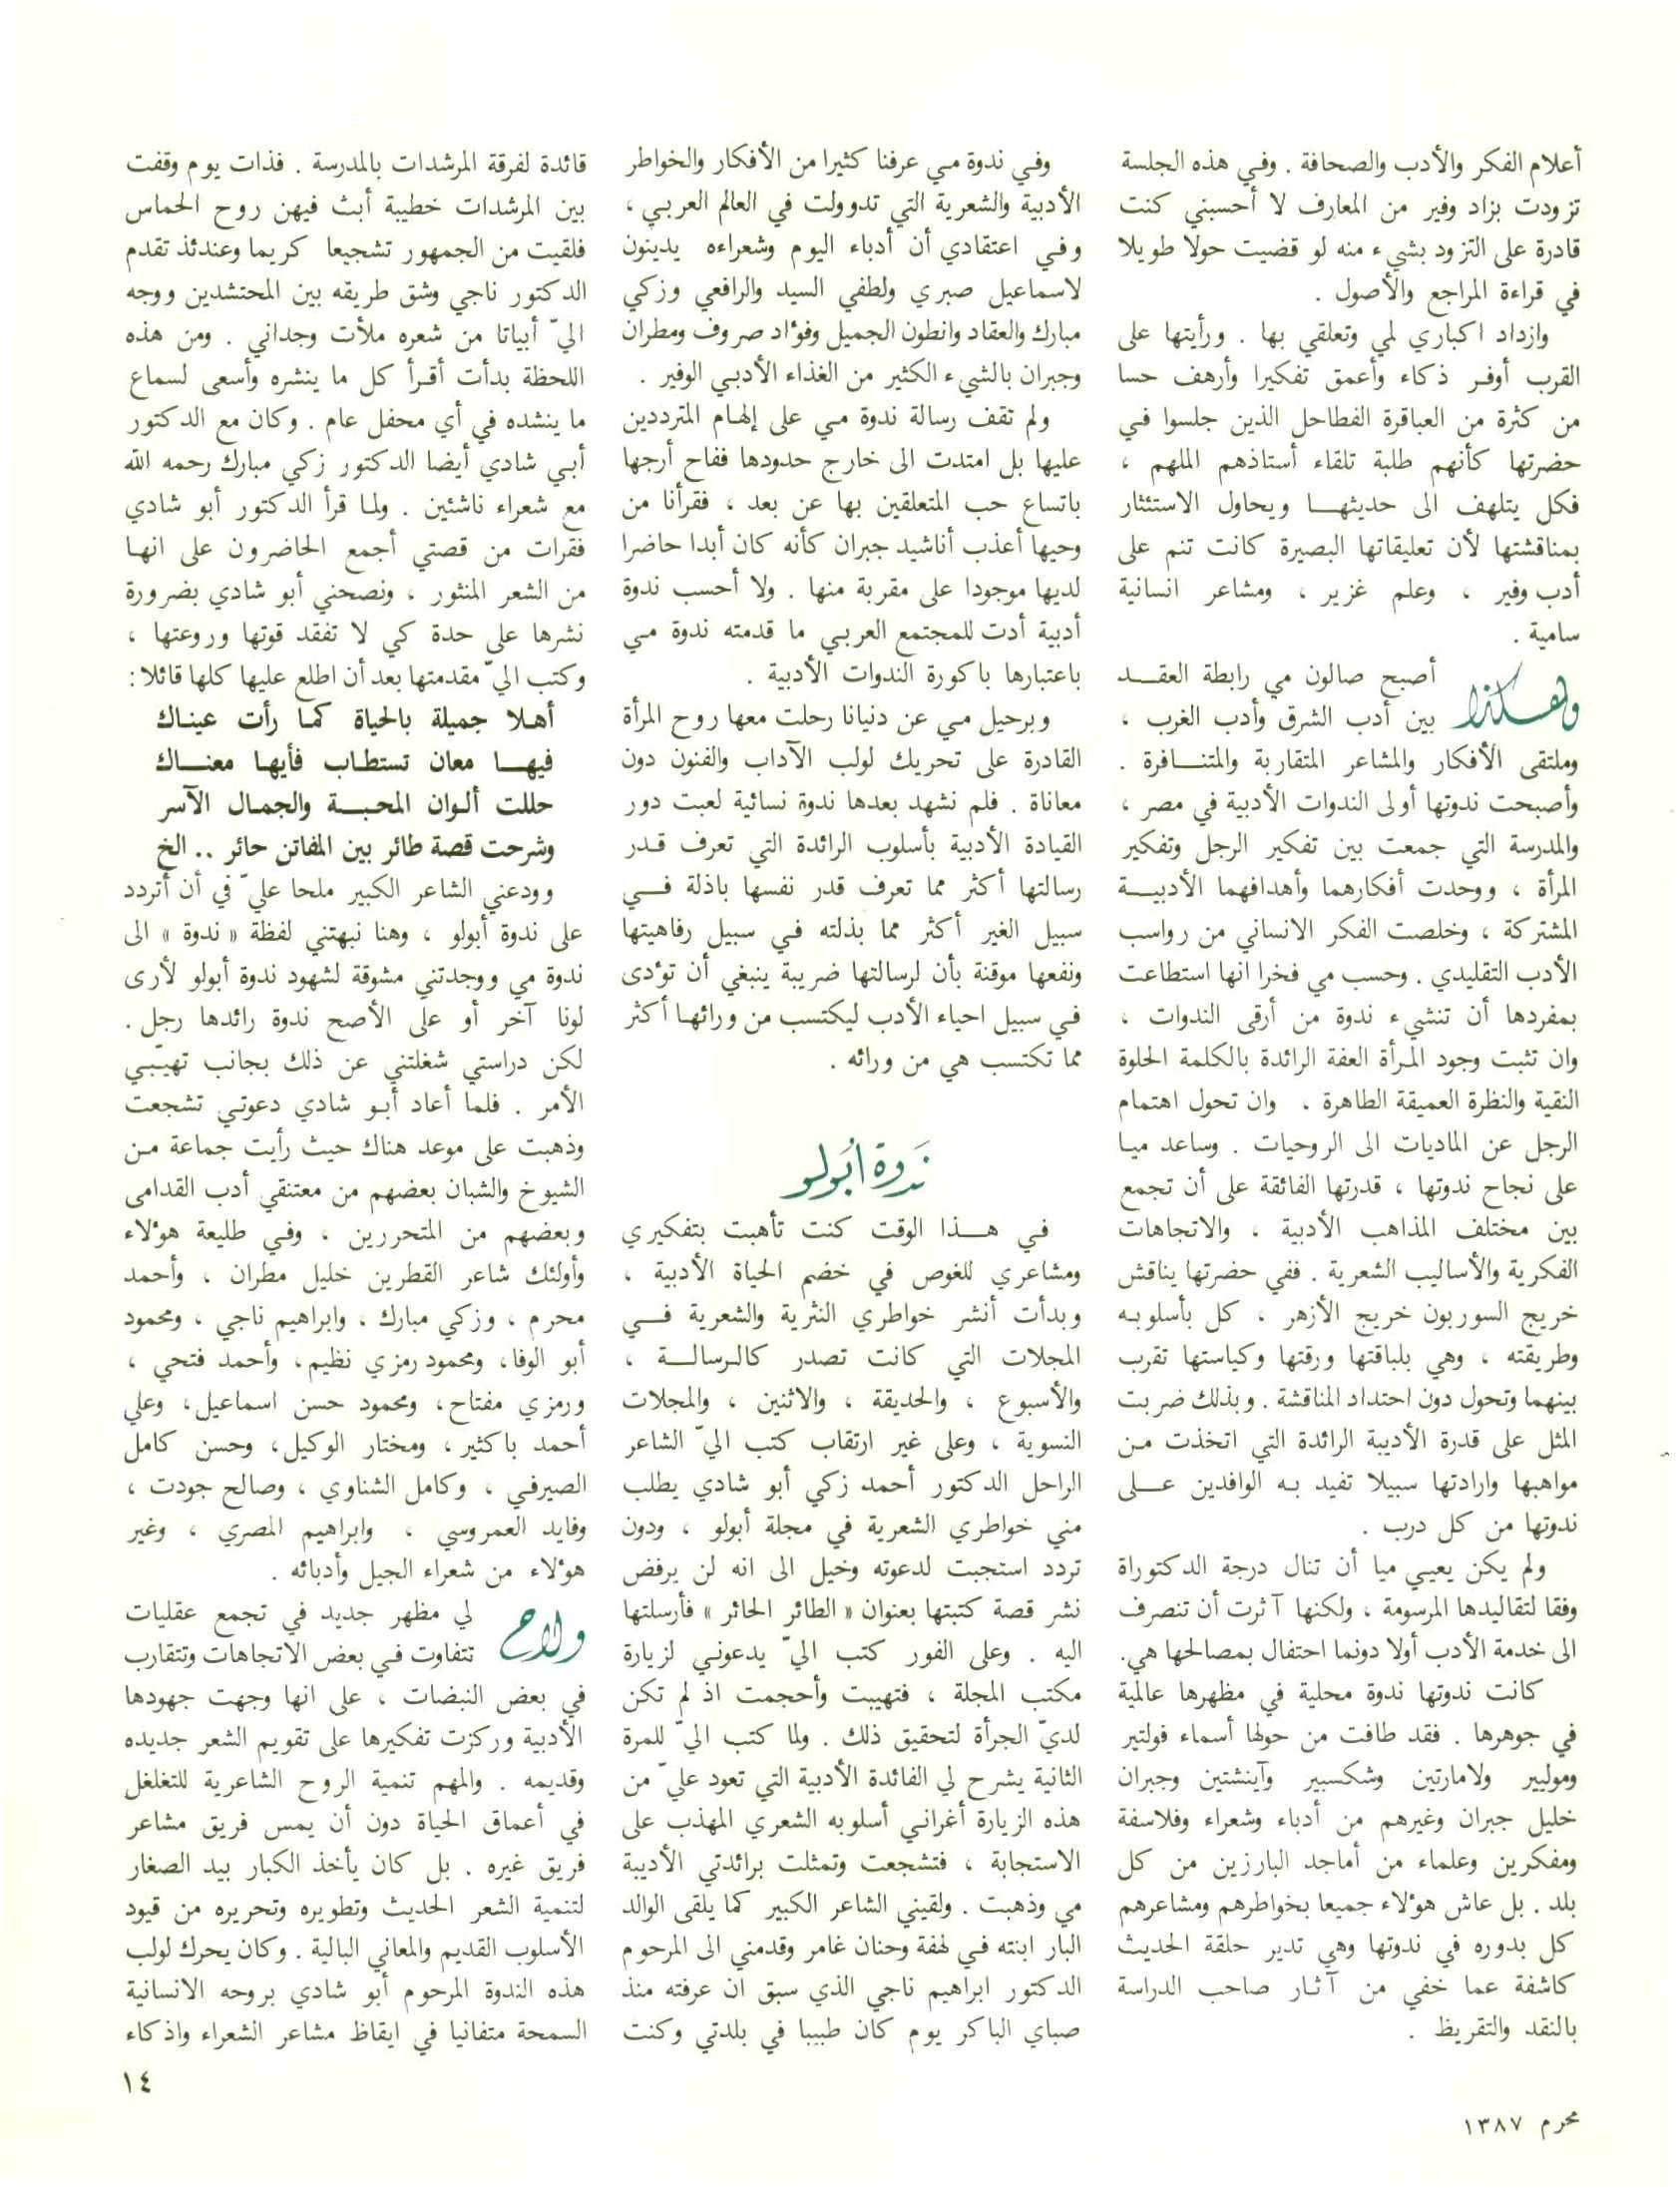 أعلام الفكر والأدب والصحافة . وفي هذه الجلسة
تزودت بزاد وفير من المعارف لا أحسبني كنت
قادرة على التزود بشيء منه لو قضيت حولا طويلا
في قراءة المراجع والأصول .
وازداد اكباري لمي وتعلقي بها . ورأيتها على
القرب أوفر ذكاء وأعمق تفكيرا وأرهف حسا
من كثرة من العباقرة الفطاحل الذين جلسوا في
حضرتها كأنهم طلبة تلقاء أستاذهم الملهم ،
فكل يتلهف الى حديثها ويحاول الاستئثار
بمناقشتها لأن تعليقاتها البصيرة كانت تنم على
أدب وفير ، وعلم غزير ، ومشاعر انسانية
سامية .
وهكذا أصبح صالون مي رابطة العقد
بين أدب الشرق وأدب الغرب ،
وملتقى الأفكار والمشاعر المتقاربة والمتنافرة .
وأصبحت ندوتها أولى الندوات الأدبية في مصر ،
والمدرسة التي جمعت بين تفكير الرجل وتفكير
المرأة ، ووحدت أفكارهما وأهدافهما الأدبية
المشتركة ، وخلصت الفكر الانساني من رواسب
الأدب التقليدي . وحسب مي فخرا انها استطاعت
بمفردها أن تنشيء ندوة من أرقى الندوات ،
وان تثبت وجود المرأة العفة الرائدة بالكلمة الحلوة
النقية والنظرة العميقة الطاهرة ، وان تحول اهتمام
الرجل عن الماديات الى الروحيات . وساعد ميا
على نجاح ندوتها ، قدرتها الفائقة على أن تجمع
بين مختلف المذاهب الأدبية ، والاتجاهات
الفكرية والأساليب الشعرية . ففي حضرتها يناقش
خريج السوربون خريج الأزهر ، كل بأسلوبه
وطريقته ، وهي بلباقتها ورقتها وكياستها تقرب
بينهما وتحول دون احتداد المناقشة . وبذلك ضربت
المثل على قدرة الأديبة الرائدة التي اتخذت من
مواهبها وارادتها سبيلا تفيد به الوافدين على
ندوتها من كل درب .
ولم يكن يعيي ميا أن تنال درجة الدكتوراة
وفقا لتقاليدها المرسومة ، ولكنها آثرت أن تنصرف
الى خدمة الأدب أولا دونما احتفال بمصالحها هي.
كانت ندوتها ندوة محلية في مظهرها عالمية
في جوهرها . فقد طافت من حولها أسماء فولتير
وموليير ولامارتين وشكسبير وآينشتين وجبران
خليل جبران وغيرهم من أدباء وشعراء وفلاسفة
ومفكرين وعلماء من أماجد البارزين من كل
بلد . بل عاش هؤلاء جميعا بخواطرهم ومشاعرهم
كل بدوره في ندوتها وهي تدير حلقة الحديث
كاشفة عما خفي من آثار صاحب الدراسة
بالنقد والتقريظ .
وفي ندوة مي عرفنا كثيرا من الأفكار والخواطر
الأدبية والشعرية التي تدوولت في العالم العربي ،
وفي اعتقادي أن أدباء اليوم وشعراءه يدينون
لاسماعيل صبري ولطفي السيد والرافعي وزكي
مبارك والعقاد وانطون الجميل وفؤاد صروف ومطران
وجبران بالشيء الكثير من الغذاء الأدبي الوفير .
ولم تقف رسالة ندوة مي على إلهام المترددين
عليها بل امتدت الى خارج حدودها ففاح أرجها
باتساع حب المتعلقين بها عن بعد ، فقرأنا من
وحيها أعذب أناشيد جبران كأنه كان أبدا حاضرا
لديها موجودا على مقربة منها . ولا أحسب ندوة
أدبية أدت للمجتمع العربي ما قدمته ندوة مي
باعتبارها باكورة الندوات الأدبية .
وبرحيل مي عن دنيانا رحلت معها روح المرأة
القادرة على تحريك لولب الآداب والفنون دون
معاناة . فلم نشهد بعدها ندوة نسائية لعبت دور
القيادة الأدبية بأسلوب الرائدة التي تعرف قدر
رسالتها أكثر مما تعرف قدر نفسها باذلة في
سبيل الغير أكثر مما بذلته في سبيل رفاهيتها
ونفعها موقنة بأن لرسالتها ضريبة ينبغي أن تؤدى
في سبيل احياء الأدب ليكتسب من ورائها أكثر
مما تكتسب هي من ورائه .
نَدوة اُبولو
في هذا الوقت كنت تأهبت بتفكيري
ومشاعري للغوص في خضم الحياة الأدبية ،
وبدأت أنشر خواطري النثرية والشعرية في
المجلات التي كانت تصدر كالرسالة ،
والأسبوع ، والحديقة ، والاثنين ، والمجلات
النسوية ، وعلى غير ارتقاب كتب اليّ الشاعر
الراحل الدكتور أحمد زكي أبو شادي يطلب
مني خواطري الشعرية في مجلة أبولو ، ودون
تردد استجبت لدعوته وخيل الى انه لن يرفض
نشر قصة كتبتها بعنوان « الطائر الحائر » فأرسلتها
اليه . وعلى الفور كتب اليّ يدعوني لزيارة
مكتب المجلة ، فتهيبت وأحجمت اذ لم تكن
لديّ الجرأة لتحقيق ذلك . ولما كتب اليّ للمرة
الثانية يشرح لي الفائدة الأدبية التي تعود عليّ من
هذه الزيارة أغراني أسلوبه الشعري المهذب على
الاستجابة ، فتشجعت وتمثلت برائدتي الأديبة
مي وذهبت . ولقيني الشاعر الكبير كما يلقى الوالد
البار ابنته في لهفة وحنان غامر وقدمني الى المرحوم
الدكتور ابراهيم ناجي الذي سبق ان عرفته منذ
صباي الباكر يوم كان طبيبا في بلدتي وكنت
قائدة لفرقة المرشدات بالمدرسة . فذات يوم وقفت
بين المرشدات خطيبة أبث فيهن روح الحماس
فلقيت من الجمهور تشجيعا كريما وعندئذ تقدم
الدكتور ناجي وشق طريقه بين المحتشدين ووجه
اليّ أبياتا من شعره ملأت وجداني . ومن هذه
اللحظة بدأت أقرأ كل ما ينشره وأسعى لسماع
ما ينشده في أي محفل عام . وكان مع الدكتور
أبي شادي أيضا الدكتور زكي مبارك رحمه الله
مع شعراء ناشئين . ولما قرأ الدكتور أبو شادي
فقرات من قصتي أجمع الحاضرون على انها
من الشعر المنثور ، ونصحني أبو شادي بضرورة
نشرها على حدة كي لا تفقد قوتها وروعتها ،
وكتب اليّ مقدمتها بعد أن اطلع عليها كلها قائلا:
أهلا جميلة بالحياة كما رأت عيناك
فيها معان تستطاب فأيها معناك
حللت ألوان المحبة والجمال الآسر
وشرحت قصة طائر بين المفاتن حائر .. الخ
وودعني الشاعر الكبير ملحا عليّ في أن أتردد
على ندوة أبولو ، وهنا نبهتني لفظة « ندوة » الى
ندوة مي ووجدتني مشوقة لشهود ندوة أبولو لأرى
لونا آخر أو على الأصح ندوة رائدها رجل.
لكن دراستي شغلتني عن ذلك بجانب تهيّبي
الأمر . فلما أعاد أبو شادي دعوتي تشجعت
وذهبت على موعد هناك حيث رأيت جماعة من
الشيوخ والشبان بعضهم من معتنقي أدب القدامى
وبعضهم من المتحررين ، وفي طليعة هؤلاء
وأولئك شاعر القطرين خليل مطران ، وأحمد
محرم ، وزكي مبارك ، وابراهيم ناجي ، ومحمود
أبو الوفا، ومحمود رمزي نظيم، وأحمد فتحي ،
ورمزي مفتاح، ومحمود حسن اسماعيل، وعلي
أحمد باكثير، ومختار الوكيل، وحسن كامل
الصيرفي ، وكامل الشناوي ، وصالح جودت ،
وفايد العمروسي ، وابراهيم المصري ، وغير
هؤلاء من شعراء الجيل وأدبائه .
ولاح لي مظهر جديد في تجمع عقليات
تتفاوت في بعض الاتجاهات وتتقارب
في بعض النبضات ، على انها وجهت جهودها
الأدبية وركزت تفكيرها على تقويم الشعر جديده
وقديمه . والمهم تنمية الروح الشاعرية للتغلغل
في أعماق الحياة دون أن يمس فريق مشاعر
فريق غيره . بل كان يأخذ الكبار بيد الصغار
لتنمية الشعر الحديث وتطويره وتحريره من قيود
الأسلوب القديم والمعاني البالية . وكان يحرك لولب
هذه الندوة المرحوم أبو شادي بروحه الانسانية
السمحة متفانيا في ايقاظ مشاعر الشعراء واذكاء
١٤
محرم ١٣٨٧